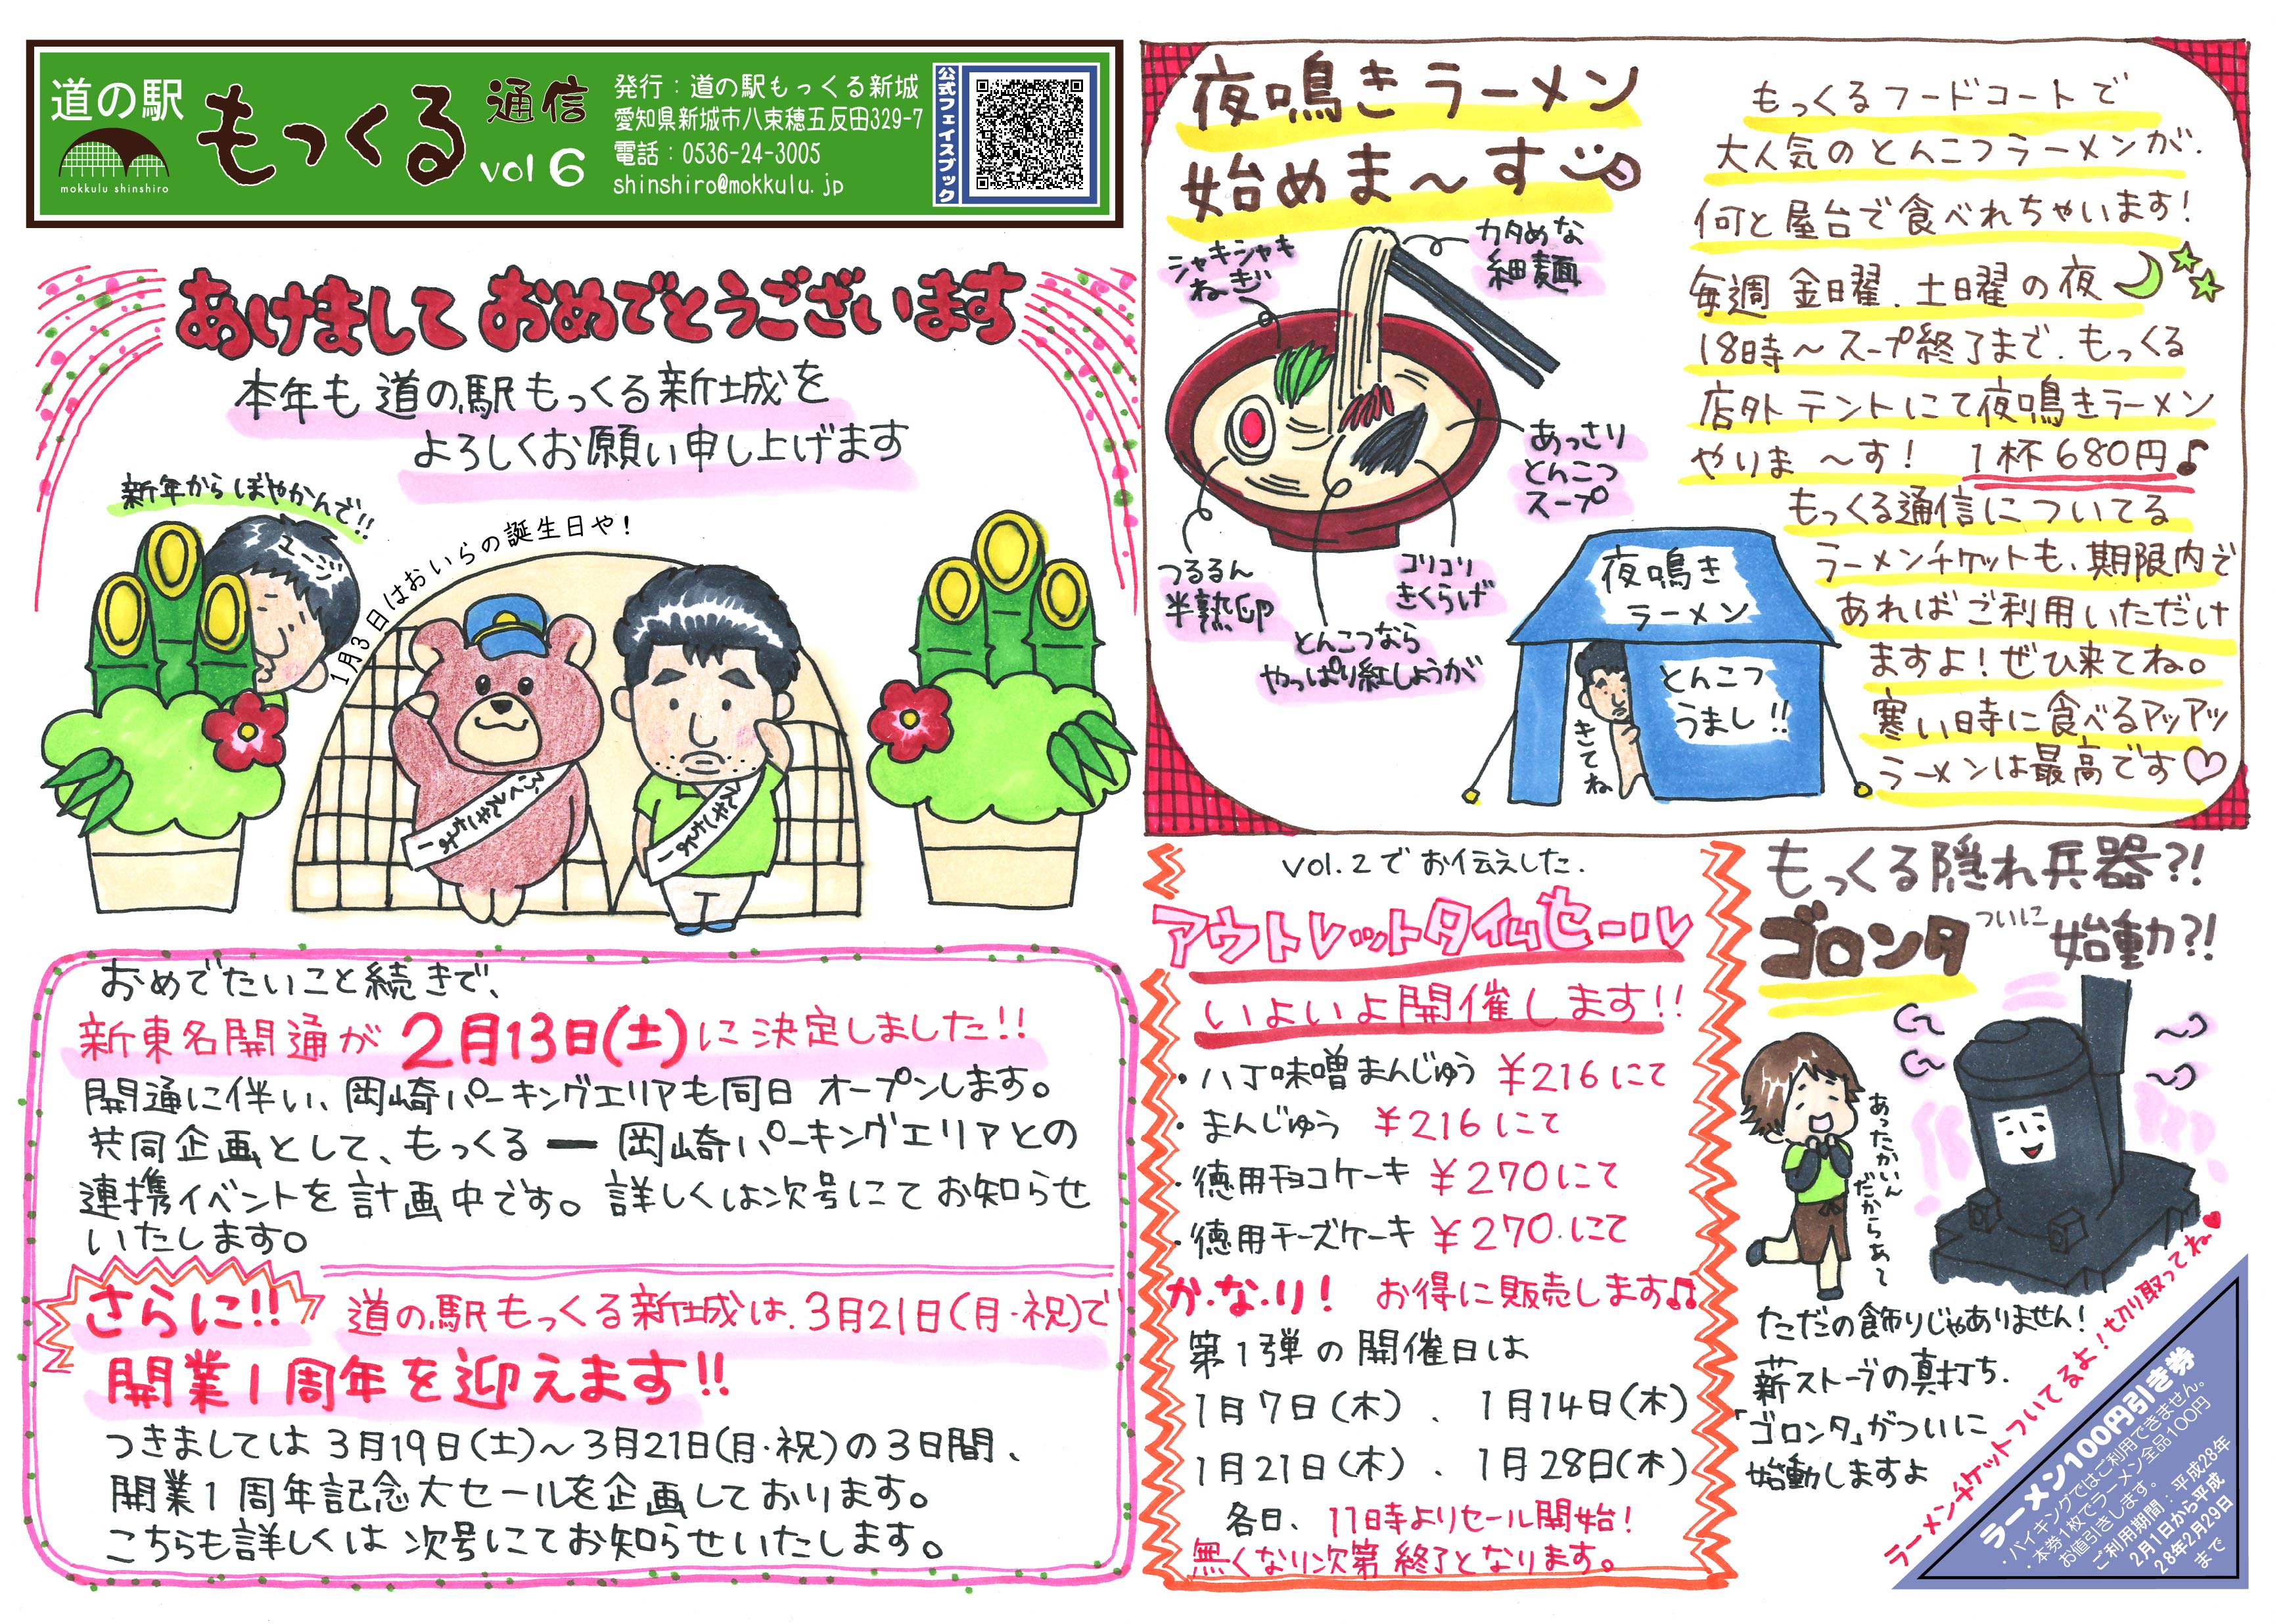 道の駅
mokkulu shinshiro
もっくる 通信
vol 6
発行：道の駅もっくる新城
愛知県新城市八束穂五反田329-7
電話：0536-24-3005
shinshiro@mokkulu.jp
公式フェイスブック
あけまして おめでとうございます
本年も 道の駅もっくる新城を
よろしくお願い申し上げます
新年からぼやかんで!!
ユージ
1月3日はおいらの誕生日や！
えきちょー
おめでたいこと続きで、
新東名開通が 2月13日(土)に決定しました!!
開通に伴い、岡崎パーキングエリアも同日 オープンします。
共同企画として、もっくる ー 岡崎パーキングエリアとの
連携イベントを計画中です。詳しくは次号にてお知らせ
いたします。
さらに!! 道の駅もっくる新城は、3月21日(月・祝)で
開業1周年を迎えます!!
つきましては 3月19日(土)～3月21日(月・祝)の3日間、
開業1周年記念大セールを企画しております。
こちらも詳しくは 次号にてお知らせいたします。
夜鳴きラーメン
始めま～す
シャキシャキ
ねぎ
カタめな
細麺
あっさり
とんこつ
スープ
つるるん
半熟卵
とんこつなら
やっぱり紅しょうが
コリコリ
きくらげ
夜鳴き
ラーメン
とんこつ
うまし!!
きてね
もっくるフードコートで
大人気のとんこつラーメンが、
何と屋台で食べれちゃいます！
毎週 金曜、土曜の夜
18時～スープ終了まで、もっくる
店外テントにて夜鳴きラーメン
やりま～す！ 1杯680円♪
もっくる通信についてる
ラーメンチケットも、期限内で
あればご利用いただけ
ますよ！ぜひ来てね。
寒い時に食べるアツアツ
ラーメンは最高です♡
vol.2でお伝えした、
アウトレットタイムセール
いよいよ開催します!!
・八丁味噌まんじゅう ¥216にて
・まんじゅう ¥216にて
・徳用チョコケーキ ¥270にて
・徳用チーズケーキ ¥270にて
か・な・り！ お得に販売します♫
第1弾の開催日は
1月7日(木)、1月14日(木)
1月21日(木)、1月28日(木)
各日、11時よりセール開始！
無くなり次第 終了となります。
もっくる隠れ兵器?!
ゴロンタ ついに 始動?!
あったかいん
だからあて
ただの飾りじゃありません！
薪ストーブの真打ち、
「ゴロンタ」がついに
始動しますよ
ラーメンチケットついてるよ！切り取ってね♥
ラーメン100円引き券
・バイキングではご利用できません。
・本券1枚でラーメン全品100円
お値引きします。
ご利用期間：平成28年
2月1日から平成
28年2月29日
まで